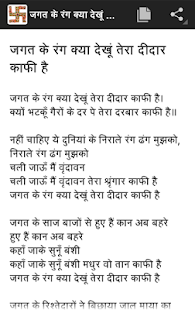 जगत के रंग क्या देखूं ...
जगत के रंग क्या देखूं तेरा दीदार
काफी है
जगत के रंग क्या देखूं तेरा दीदार काफी है।
क्यों भटकूँ गैरों के दर पे तेरा दरबार काफी है॥
नहीं चाहिए ये दुनियां के निराले रंग ढंग मुझको,
निराले रंग ढंग मुझको
चली जाऊँ मैं वृंदावन
चली जाऊँ मैं वृंदावन तेरा श्रृंगार काफी है
जगत के रंग क्या देखूं तेरा दीदार काफी है
जगत के साज बाजों से हुए हैं कान अब बहरे
हुए हैं कान अब बहरे
कहाँ जाके सुनूँ बंशी
कहाँ जाके सुनूँ बंशी मधुर वो तान काफी है
जगत के रंग क्या देखूं तेरा दीदार काफी है
जगत के रिश्तेदारों ने बिछाया जाल माया का